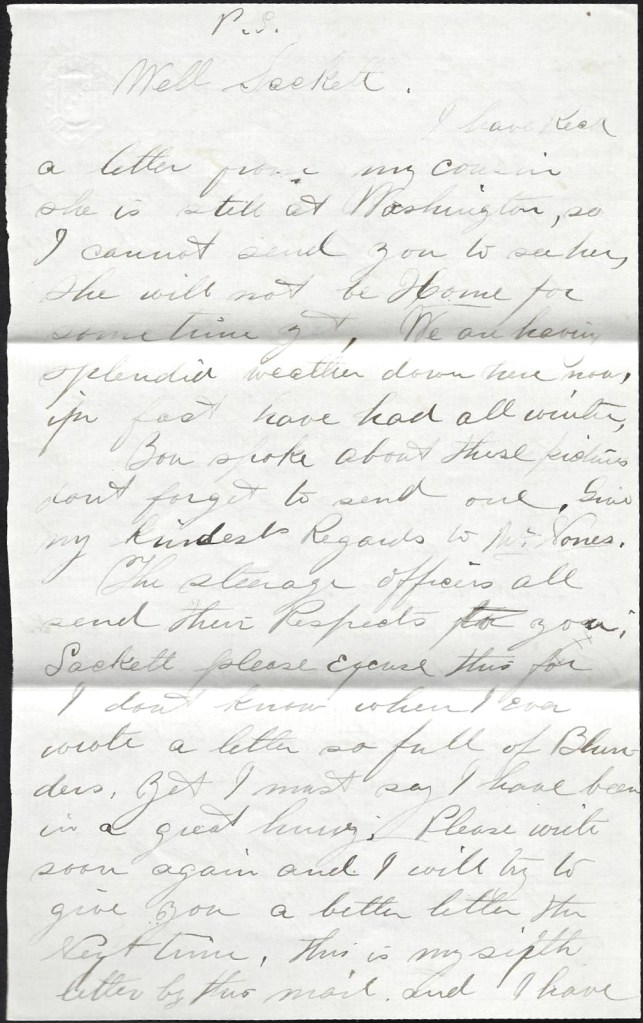 P.S.
Well Sackett.
I have Recd
a letter from my cousin
she is still at Washington, so
I cannot send you to see her,
She will not be Home for
sometime yet, We are having
splendid weather down here now,
in fact have had all winter,
You spoke about those pictures
dont forget to send one, Give
my kindest Regards to Mr. Nones.
The steerage officers all
send their Respects to you.
Sackett please Excuse this for
I dont know when I Ever
wrote a letter so full of Blun-
ders, Yet I must say I have been
in a great hurry. Please write
soon again and I will try to
give you a better letter the
Next time, This is my sixth
letter by this mail. and I have